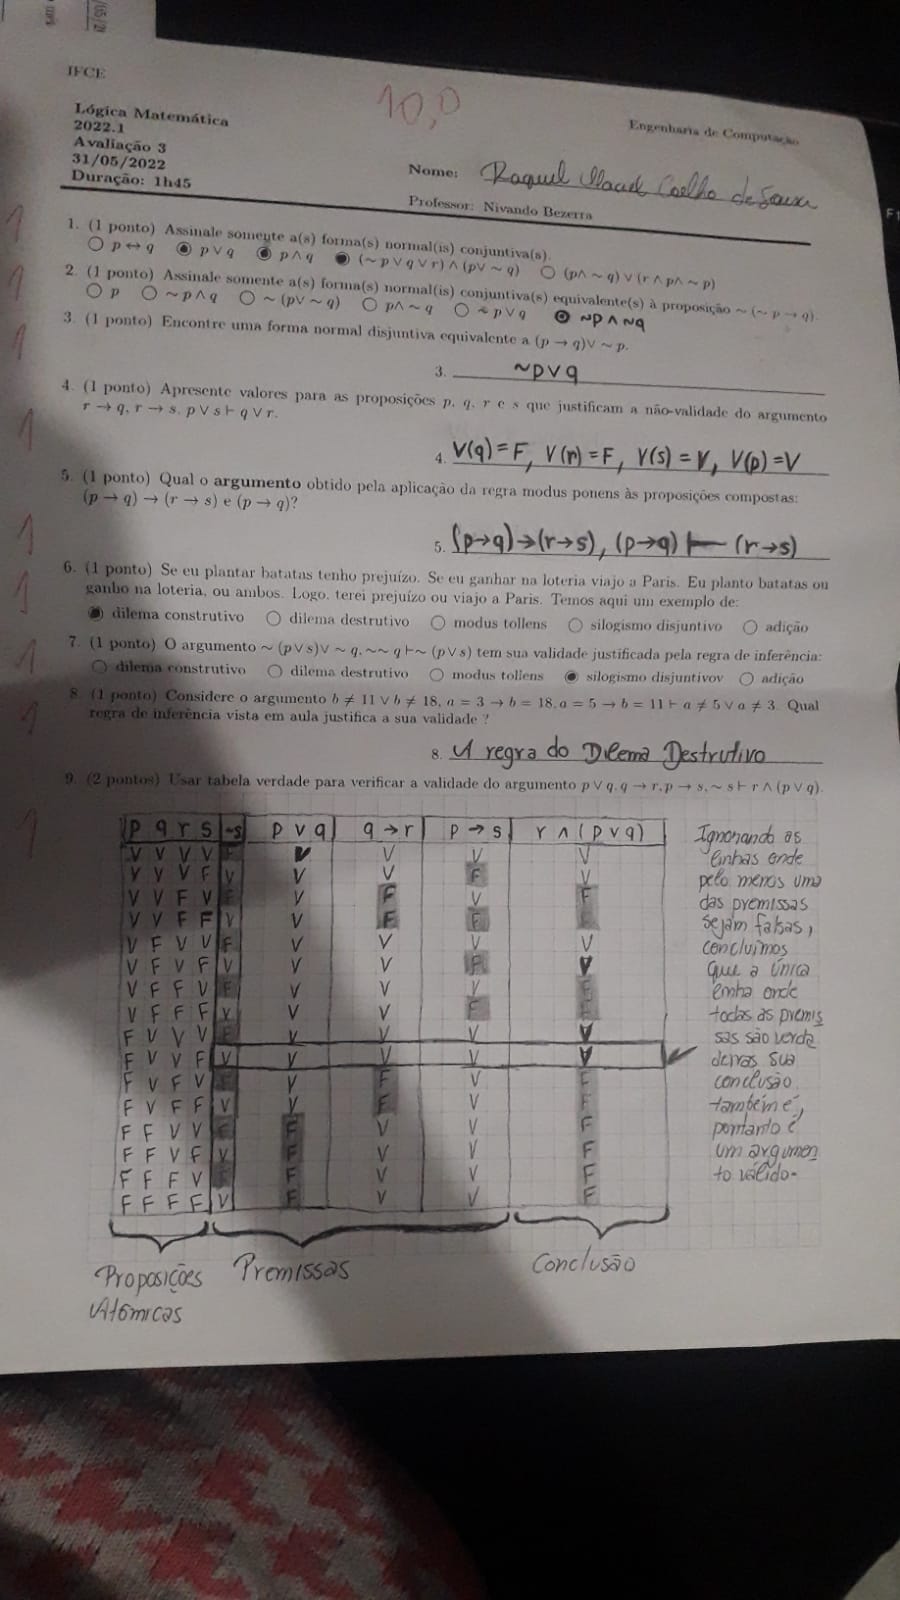 IFCE
10,0
Engenharia de Computação
Lógica Matemática
2022.1
Avaliação 3
31/05/2022
Duração: 1h45
Nome: Raquel Maciel Coelho de Sousa
Professor: Nivando Bezerra
1
1. (1 ponto) Assinale somente a(s) forma(s) normal(is) conjuntiva(s).
○ p ↔ q ◉ p ∨ q ◉ p ∧ q ◉ (∼ p ∨ q ∨ r) ∧ (p∨ ∼ q) ○ (p∧ ∼ q) ∨ (r ∧ p∧ ∼ p)
1
2. (1 ponto) Assinale somente a(s) forma(s) normal(is) conjuntiva(s) equivalente(s) à proposição ∼ (∼ p → q).
○ p ○ ∼ p ∧ q ○ ∼ (p∨ ∼ q) ○ p∧ ∼ q ○ ∼ p ∨ q ◉ ~p ∧ ~q
1
3. (1 ponto) Encontre uma forma normal disjuntiva equivalente a (p → q)∨ ∼ p.
3. ~p ∨ q
1
4. (1 ponto) Apresente valores para as proposições p, q, r e s que justificam a não-validade do argumento
r → q, r → s, p ∨ s ⊢ q ∨ r.
4. V(q) = F, V(r) = F, V(s) = V, V(p) = V
1
5. (1 ponto) Qual o argumento obtido pela aplicação da regra modus ponens às proposições compostas:
(p → q) → (r → s) e (p → q)?
5. (p→q)→(r→s), (p→q) ⊢ (r→s)
1
6. (1 ponto) Se eu plantar batatas tenho prejuízo. Se eu ganhar na loteria viajo a Paris. Eu planto batatas ou
ganho na loteria, ou ambos. Logo, terei prejuízo ou viajo a Paris. Temos aqui um exemplo de:
◉ dilema construtivo ○ dilema destrutivo ○ modus tollens ○ silogismo disjuntivo ○ adição
1
7. (1 ponto) O argumento ∼ (p∨s)∨ ∼ q, ∼∼ q ⊢∼ (p∨s) tem sua validade justificada pela regra de inferência:
○ dilema construtivo ○ dilema destrutivo ○ modus tollens ◉ silogismo disjuntivov ○ adição
1
8. (1 ponto) Considere o argumento b ≠ 11 ∨ b ≠ 18, a = 3 → b = 18, a = 5 → b = 11 ⊢ a ≠ 5 ∨ a ≠ 3. Qual
regra de inferência vista em aula justifica a sua validade ?
8. A regra do Dilema Destrutivo
9. (2 pontos) Usar tabela verdade para verificar a validade do argumento p ∨ q, q → r, p → s, ∼ s ⊢ r ∧ (p ∨ q).
1
p q r s ~s p ∨ q q → r p → s r ∧ (p ∨ q)
V V V V F V V V V
V V V F V V V F V
V V F V F V F V F
V V F F V V F F F
V F V V F V V V V
V F V F V V V F V
V F F V F V V V F
V F F F V V V F F
F V V V F V V V V
F V V F V V V V V
F V F V F V F V F
F V F F V V F V F
F F V V F F V V F
F F V F V F V V F
F F F V F F V V F
F F F F V F V V F
Ignorando as
linhas onde
pelo menos uma
das premissas
sejam falsas,
concluímos
que a única
linha onde
todas as premis
sas são verda
deiras sua
conclusão
também é,
portanto é
um argumen
to válido.
Proposições
Atômicas
Premissas
Conclusão